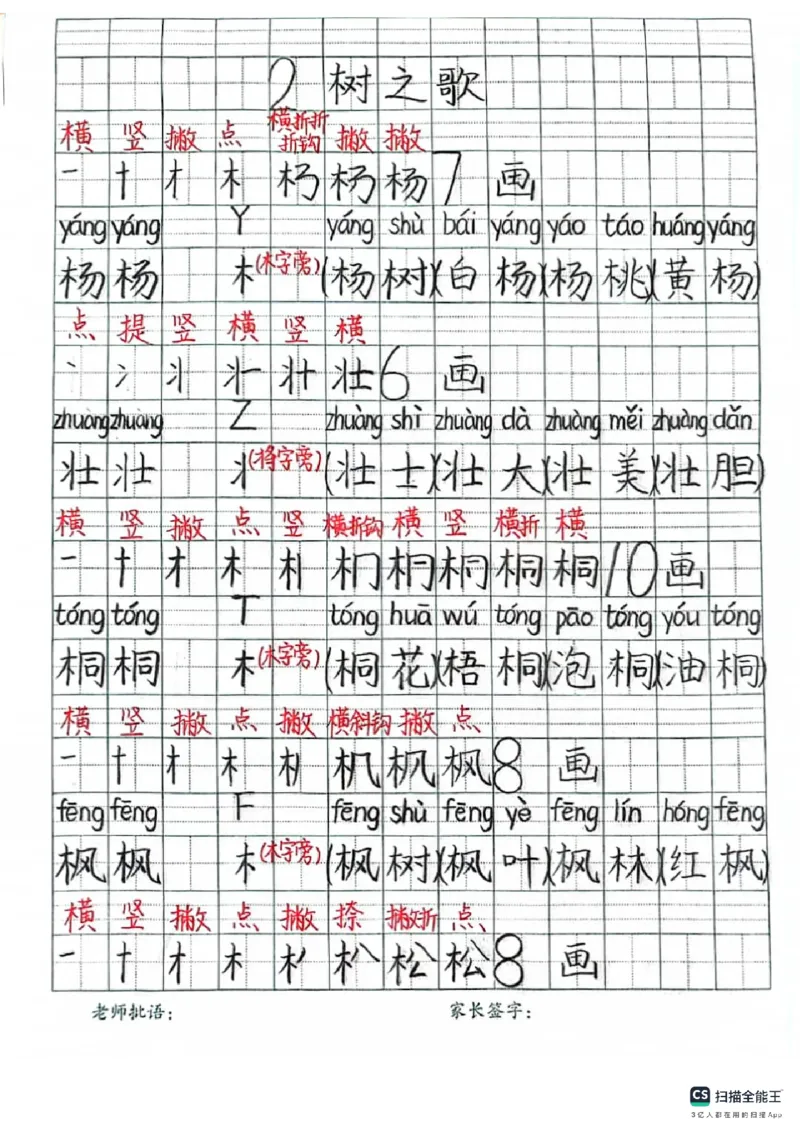 2 树之歌
横 竖 撇 点 横折折折钩 撇 撇
一 十 才 木 杨 7 画
yáng yáng Y yáng shù bái yáng yáo táo huáng yáng
杨 杨 木(木字旁)(杨 树)(白 杨)(杨 桃)(黄 杨)
点 提 竖 横 竖 横
丶 冫 丬 壮 6 画
zhuàng zhuàng Z zhuàng shì zhuàng dà zhuàng měi zhuàng dǎn
壮 壮 丬(将字旁)(壮 士)(壮 大)(壮 美)(壮 胆)
横 竖 撇 点 竖 横折钩 横 竖 横折 横
一 十 才 木 桐 10 画
tóng tóng T tóng huā wú tóng pāo tóng yóu tóng
桐 桐 木(木字旁)(桐 花)(梧 桐)(泡 桐)(油 桐)
横 竖 撇 点 撇 横斜钩 撇 点
一 十 才 木 机 枫 8 画
fēng fēng F fēng shù fēng yè fēng lín hóng fēng
枫 枫 木(木字旁)(枫 树)(枫 叶)(枫 林)(红 枫)
横 竖 撇 点 撇 捺 撇折 点
一 十 才 木 朳 松 8 画
老师批语： 家长签字：
CS 扫描全能王
3亿人都在用的扫描App